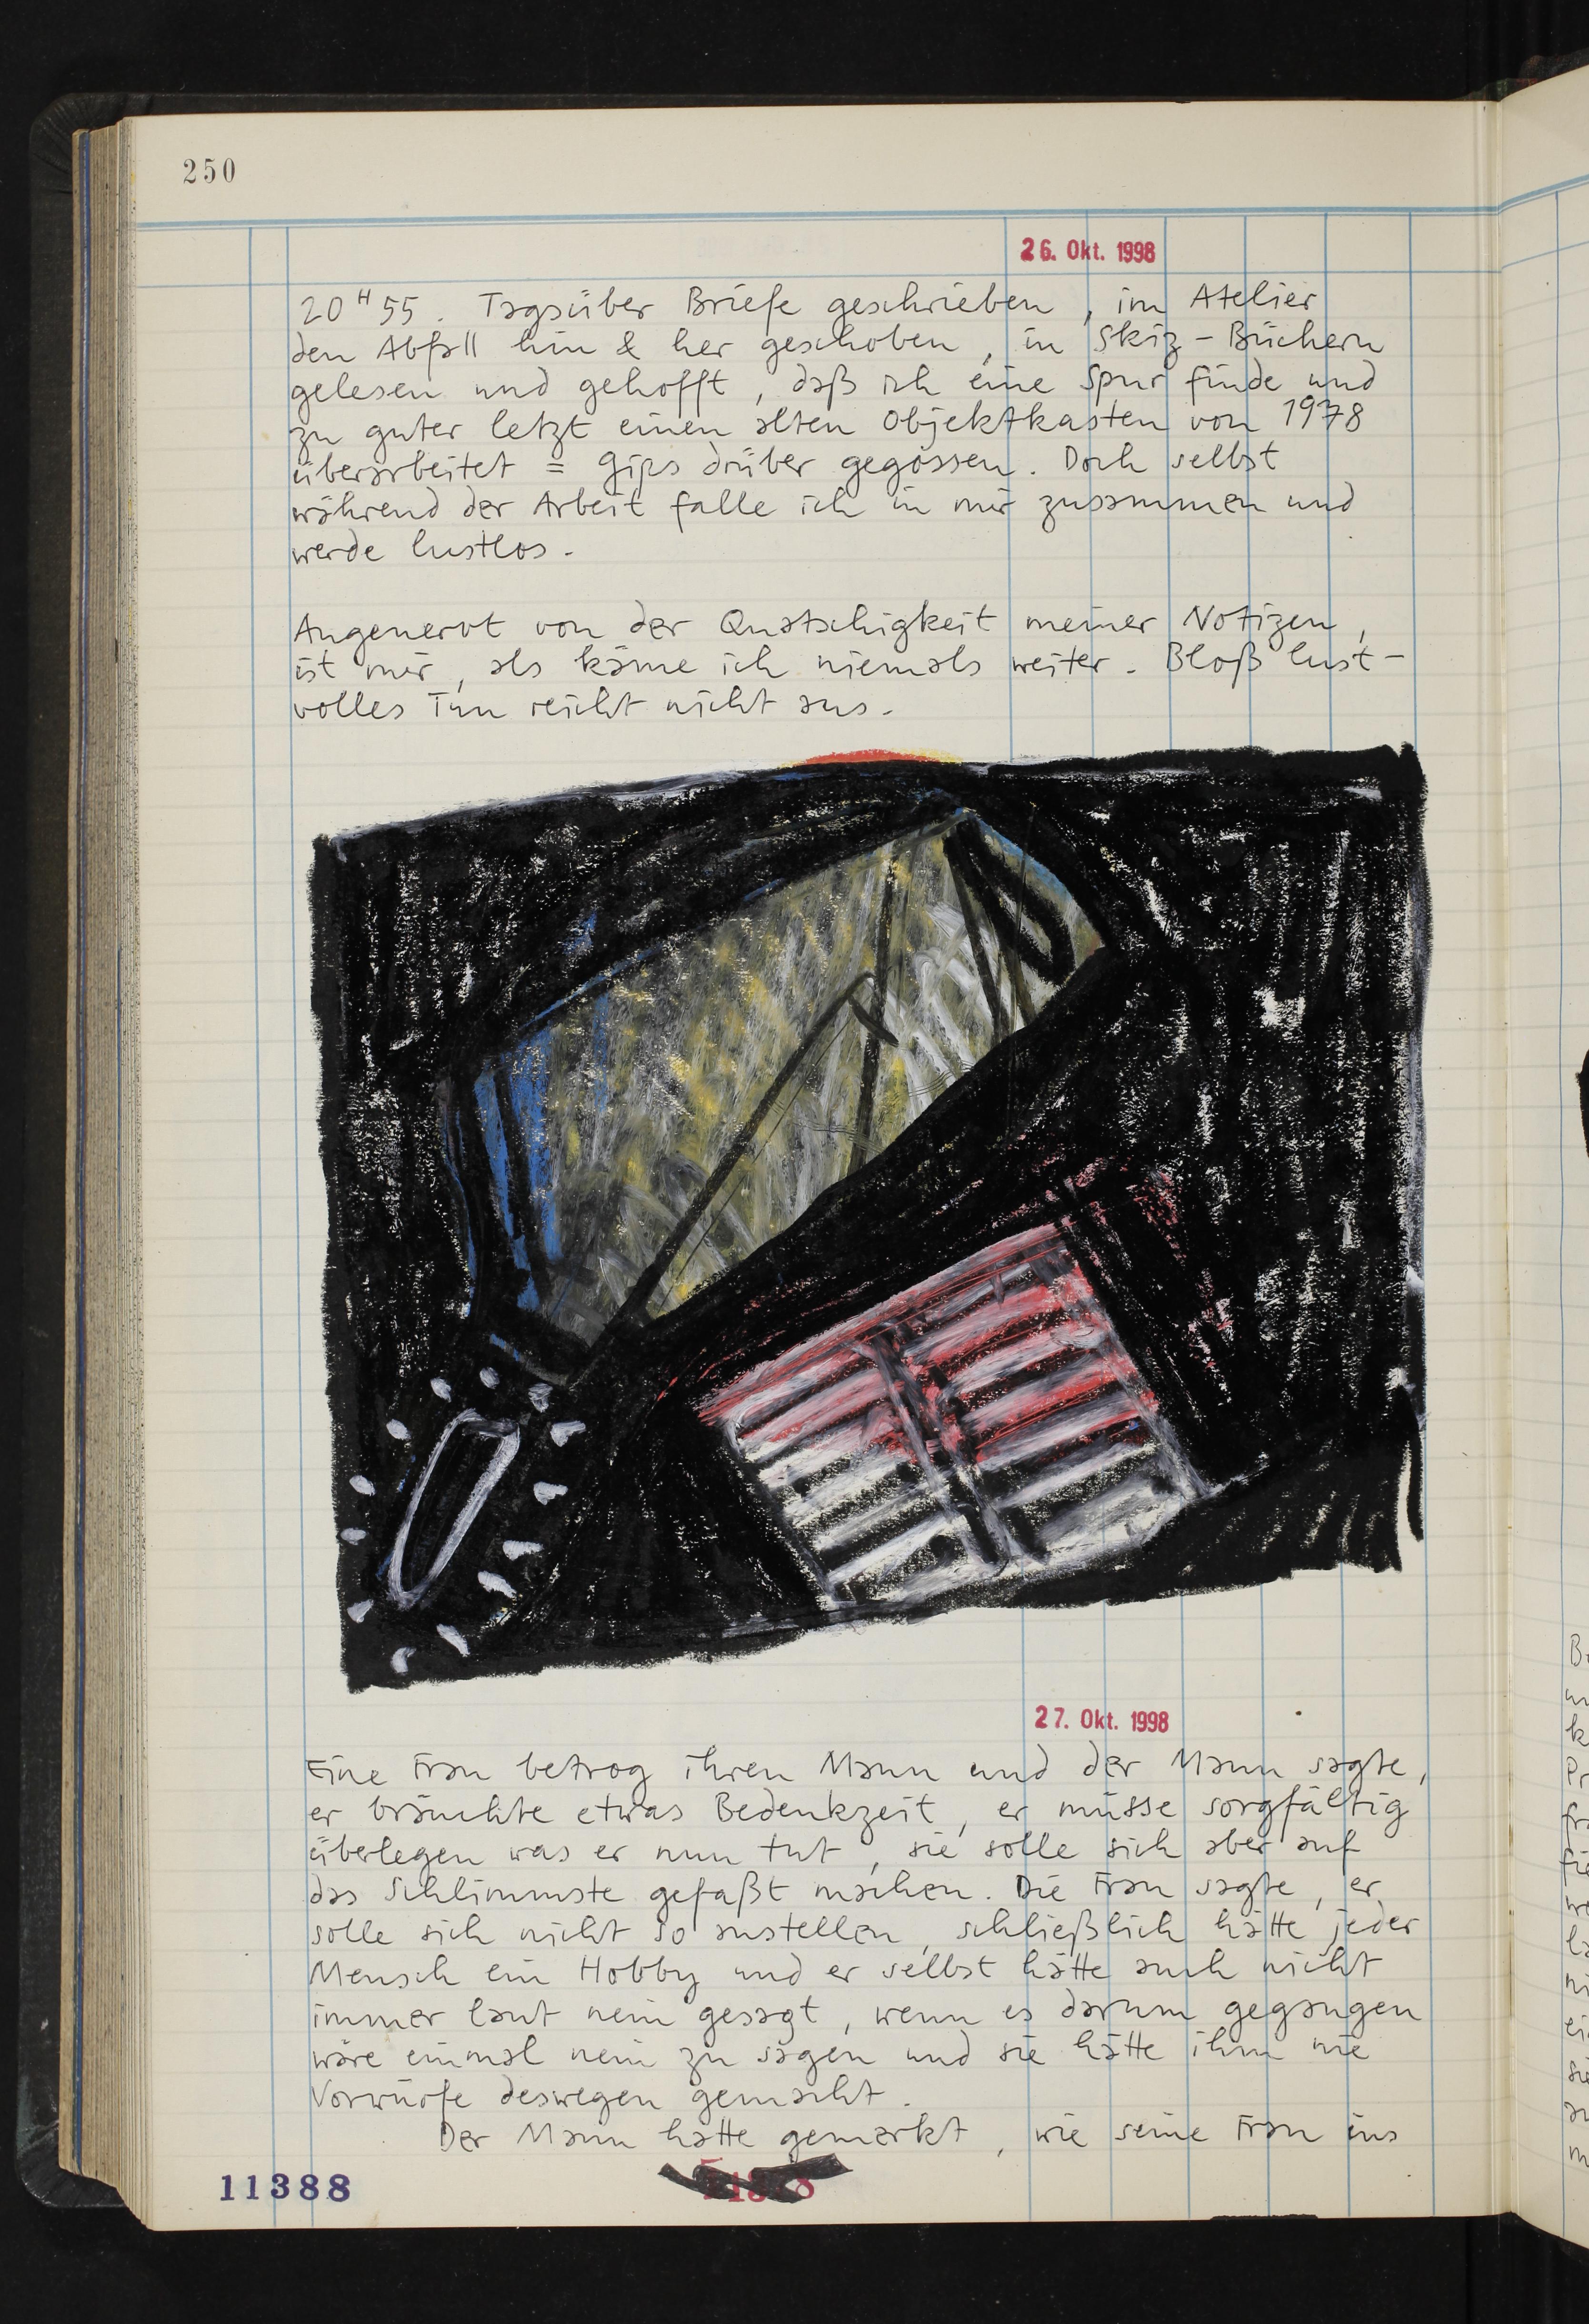 250
26. Okt. 1998
20 H 55. Tagsüber Briefe geschrieben, im Atelier
den Abfall hin & her geschoben, in Skiz-Büchern
gelesen und gehofft, daß ich eine Spur finde und
zu guter letzt einen alten Objektkasten von 1978
überarbeitet = Gips drüber gegossen. Doch selbst
während der Arbeit falle ich in mir zusammen und
werde lustlos.
Angenervt von der Quatschigkeit meiner Notizen,
ist mir, als käme ich niemals weiter. Bloß lust-
volles Tun reicht nicht aus.
27. Okt. 1998
Eine Frau betrog ihren Mann und der Mann sagte,
er bräuchte etwas Bedenkzeit, er müsse sorgfältig
überlegen was er nun tut, sie solle sich aber auf
das Schlimmste gefaßt machen. Die Frau sagte, er
solle sich nicht so anstellen, schließlich hätte jeder
Mensch ein Hobby und er selbst hätte auch nicht
immer laut nein gesagt, wenn es darum gegangen
wäre einmal nein zu sagen und sie hätte ihm nie
Vorwürfe deswegen gemacht.
Der Mann hatte gemerkt, wie seine Frau ins
11388